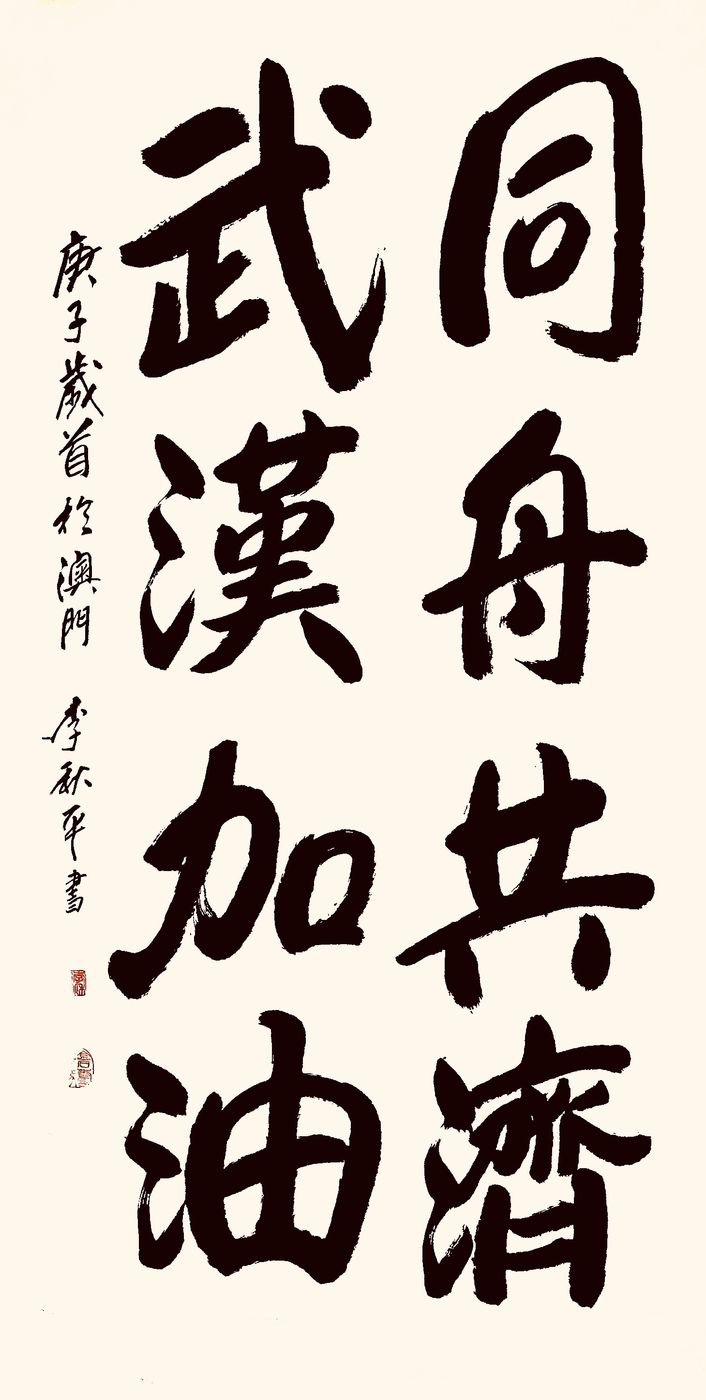 同舟共濟
武漢加油
庚子歲首於澳門 李秋平書